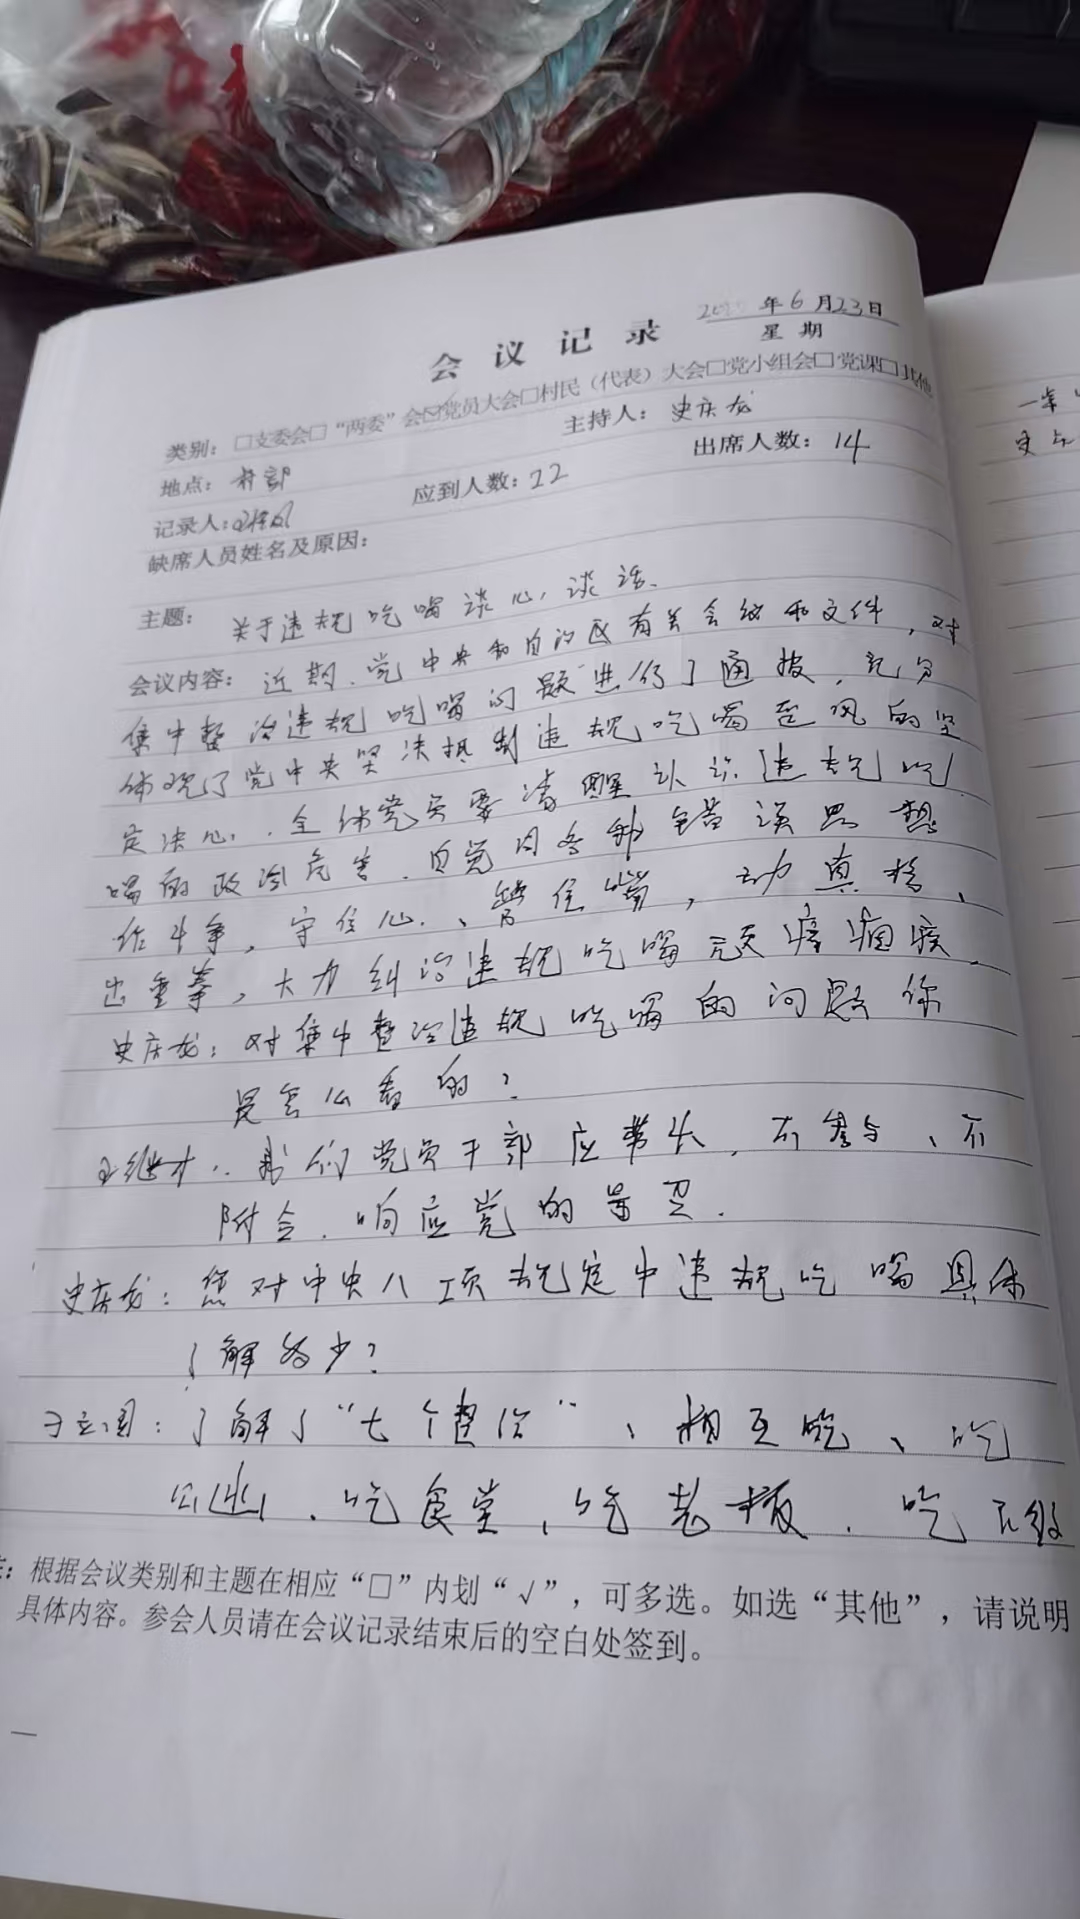 会议记录
年6月23日
星期
类别：□支委会□“两委”会☑党员大会□村民（代表）大会□党小组会□党课□其他
地点：村部 主持人：史庆龙
记录人： 应到人数：22 出席人数：14
缺席人员姓名及原因：
主题：关于违规吃喝谈心，谈话.
会议内容：近期、党中央和自治区有关会议和文件，对
集中整治违规吃喝问题进行了通报，充分
体现了党中央坚决抵制违规吃喝歪风的坚
定决心．全体党员要清醒认识违规吃
喝的政治危害．自觉同各种错误思想
作斗争，守住心、管住嘴，动真格、
出重拳，大力纠治违规吃喝顽瘴痼疾．
史庆龙：对集中整治违规吃喝的问题你
是怎么看的？
王继才：我们党员干部应带头，不参与、不
附会．响应党的号召．
史庆龙：您对中央八项规定中违规吃喝具体
了解多少？
于立国：了解了“七个整治”、相互吃、吃
公业、吃食堂、吃老板．吃下级
注：根据会议类别和主题在相应“□”内划“√”，可多选。如选“其他”，请说明
具体内容。参会人员请在会议记录结束后的空白处签到。